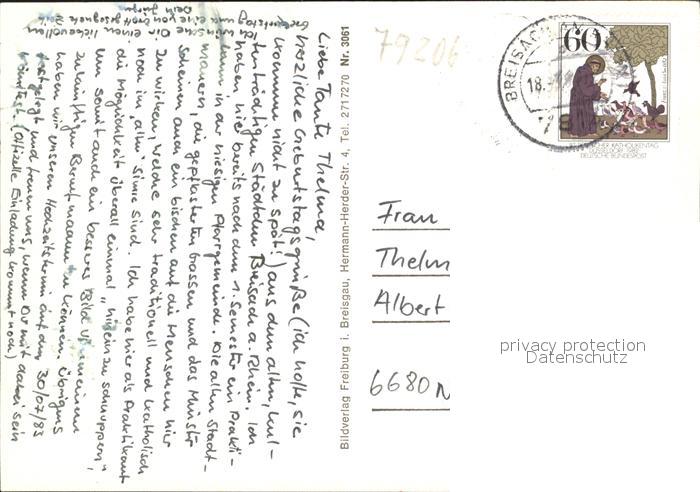 Liebe Tante Thelma,
herzliche Geburtstagsgrüße (ich hoffe, sie
kommen nicht zu spät!) aus dem alten, kul-
turträchtigen Städtchen Breisach a. Rhein. Ich
haben, hier bereits nach dem 1. Semester ein Prakti-
kum in der hiesigen Pfarrgemeinde. Die alten Stadt-
mauern, die gepflasterten Gassen und das Münster
scheinen auch ein bischen auf die Menschen hier
zu wirken, welche sehr traditionell und katholisch
noch im "alten" Sinne sind. Ich habe hier als Praktikant
die Möglichkeit überall einmal "hineinzuschnuppern",
um somit auch ein besseres Bild von meinem
zukünftigen Beruf machen zu können. Übrigens
haben wir unseren Hochzeitstermin auf den 30/07/83
festgelegt und freuen uns, wenn Du mit dabei sein
könntest. (Offizielle Einladung kommt noch)
Ich wünsche Dir einen liebevollen
Geburtstag und eine von Gott gesegnete Zeit
Dein
Bildverlag Freiburg i. Breisgau, Hermann-Herder-Str. 4, Tel. 2717270 Nr. 3061
79206
BREISACH
18.
78
60
DEUTSCHER KATHOLIKENTAG
DÜSSELDORF 1982
DEUTSCHE BUNDESPOST
Frau
Thelm
Albert
6680 N
privacy protection
Datenschutz